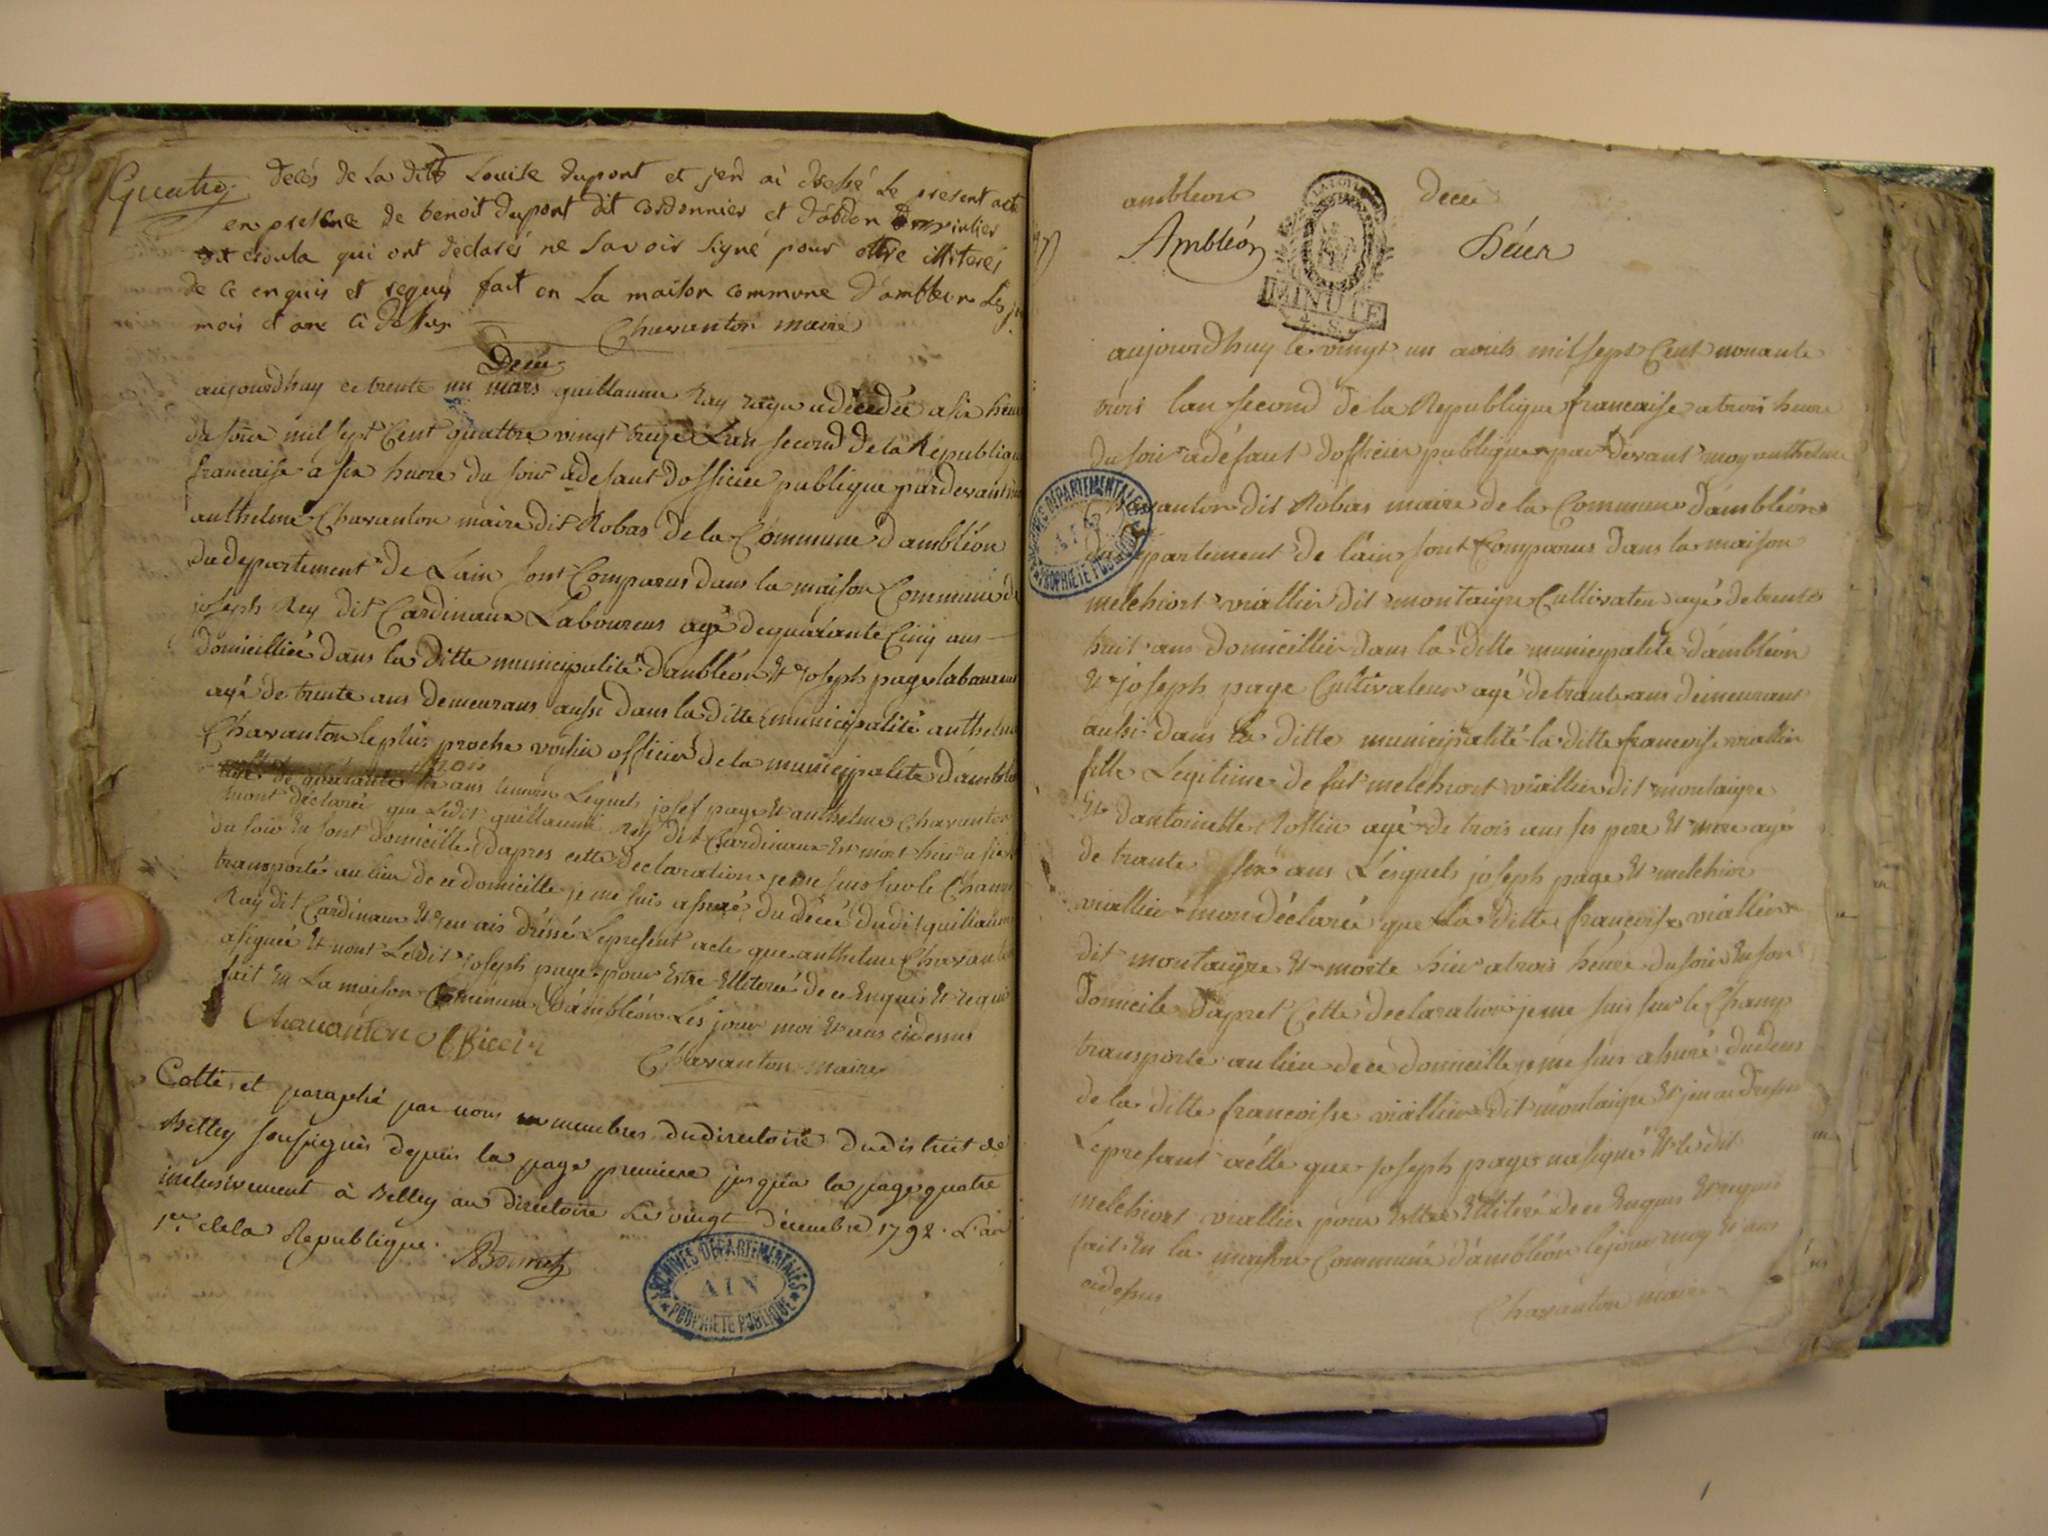 Quatre
décés de la ditte Louise dupont et jen ai dressé le present acte
en presence de benoit dupont dit cordonnier et d'abdon
dit croula qui ont déclarés ne savoir signé pour ettre illiterés
de ce enquis et requis fait en la maison commune d'ambleon les jo
mois et an ci dessus
Chavanton maire
Deces
aujourdhuy ce trente un mars guillaume Ray a décedée a six heure
du soir mil sept Cent quattre vingt treize Lan second de la République
francaise a six heure du soir a defaut dofficier publique pardevant
anthelme Chavanton maire dit Robas de la Commune d'ambléon
du departement de Lain sont Comparus dans la maison Commune
joseph Rey dit Cardinaux Laboureur agé de quarante Cinq ans
domicillié dans la ditte municipalité dambléon & joseph page laboureur
agé de trente ans demeurans aussi dans la ditte municipalité anthelm
Chavanton le plus proche voisin officier de la municipalité d'amble
trois
agé de quarante ans temoin Lequels josef page & anthelme Chavanton
mont déclaré que Ledit guillaume Rey dit Cardinaux est mort hier a six
du soir en sont domicille dapres cette declaration je me suis sur le Champ
transporté au lieu de ce domicille je me suis assuré du décé dudit guillaume
Ray dit Cardinaux & jen ais dréssé Le present acte que anthelme Chavanton
a signée & nont Ledit joseph page pour Estre Illiteré de ce Enquis & requis
fait En La maison Commune d'ambléon Les jour moi & ans cidessus
Chavanton officier
Chavanton maire
Cotté et paraphé par nous membres du directoire du district de
Belley soussignés depuis la page premiere jusqu'a la page quatre
inclusivement à Belley au directoire Le vingt décembre 1792. L'an
1er de la Republique.
ambleon
dece
Ambléon
Décer
LA LOY
MINUTE
4. S.
aujourdhuy le vingt un avril mil sept Cent nonante
trois lan second de la Republique francaise a trois heure
du soir a défaut dofficier publique par devant moy anthelme
Chavanton dit Robas maire de la Commune dambléon
du département de lain sont Comparus dans la maison
melchiort viallier dit montaigre Cultivateur agé de trente
huit ans domicillier dans la ditte municipalité dambléon
& joseph page Cultivateur agé de trante ans demeurant
aussi dans la ditte municipalité la ditte francoise viallier
fille Legitime de fut melchiort viallier dit montaigre
& dantoinette Rostin agé de trois ans ses pere & mere agé
de trante six ans Lesquels joseph page & melchior
viallier mon déclarée que la ditte francoise viallier
dit montaigre & morte hier a trois héure du soir En son
domicile Dapret Cette declaration je me suis sur le Champ
transporté au lieu de ce domicille je me suis assuré du deces
de la ditte francoise viallier dit montaigre & jen ai dressé
Le presant acte que joseph page na signé & le dit
melchiort viallier pour Estre Illiteré de ce Enquis & requis
fait En la maison Commune dambléon le jour moy & ans
cidessus
Chavanton maire
ARCHIVES DÉPARTEMENTALES
AIN
PROPRIÉTÉ PUBLIQUE
ARCHIVES DÉPARTEMENTALES
AIN
PROPRIÉTÉ PUBLIQUE